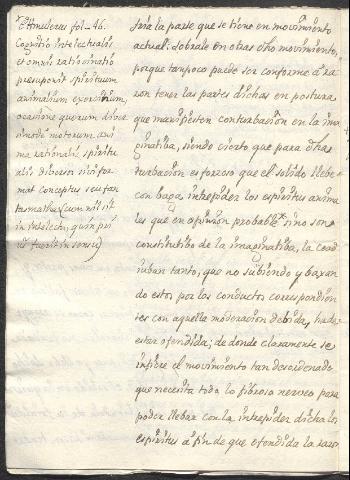 fol. 46.
Cognitio intelectualis
et omnis ratiocinatio
presuponit spirituum
animalium excursionum,
ocasione quorum diver
simode motorum ani
ma rationalis spiritu
alis diversos sivi for
mat conceptus seu fan
tasmatha (cum nil sit
in intelectu, quin pri
us fuerit in sensu)
fuia la parte que se tiene en movimiento
actual: sobrale en otras dho movimiento,
porque tampoco puede ser conforme a ra
zon tener las partes dichas en postura
que manifiesten conturbacion en la ima
ginatiba, siendo cierto que para dha
turbacion es forzoso que el solido llebe
con baga intrepidez los espiritus anima
les que en opinion probable sino son
constitutibo de la imaginatiba, la coad
iuban tanto, que no subiendo y baxan
do estos por los conductos correspondien
tes con aquella moderacion debida, ha de
estar ofendida; de donde claramente se
infiere el movimiento tan desordenado
que necesita todo lo fibroso nerveo para
poder llebar con la intrepidez dicha los
espiritus a fin de que ofendida la razo